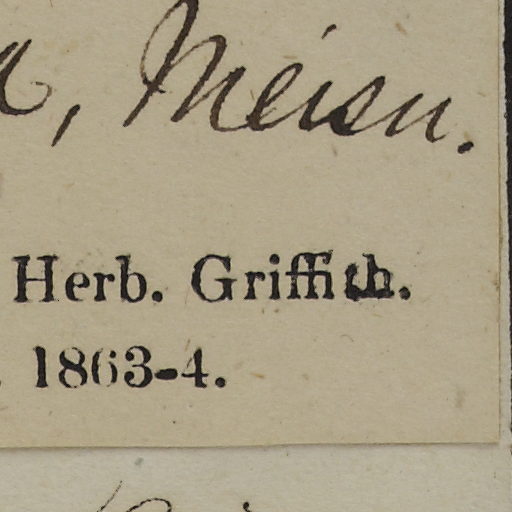 a, Meisn.
Herb. Griffith.
1863-4.